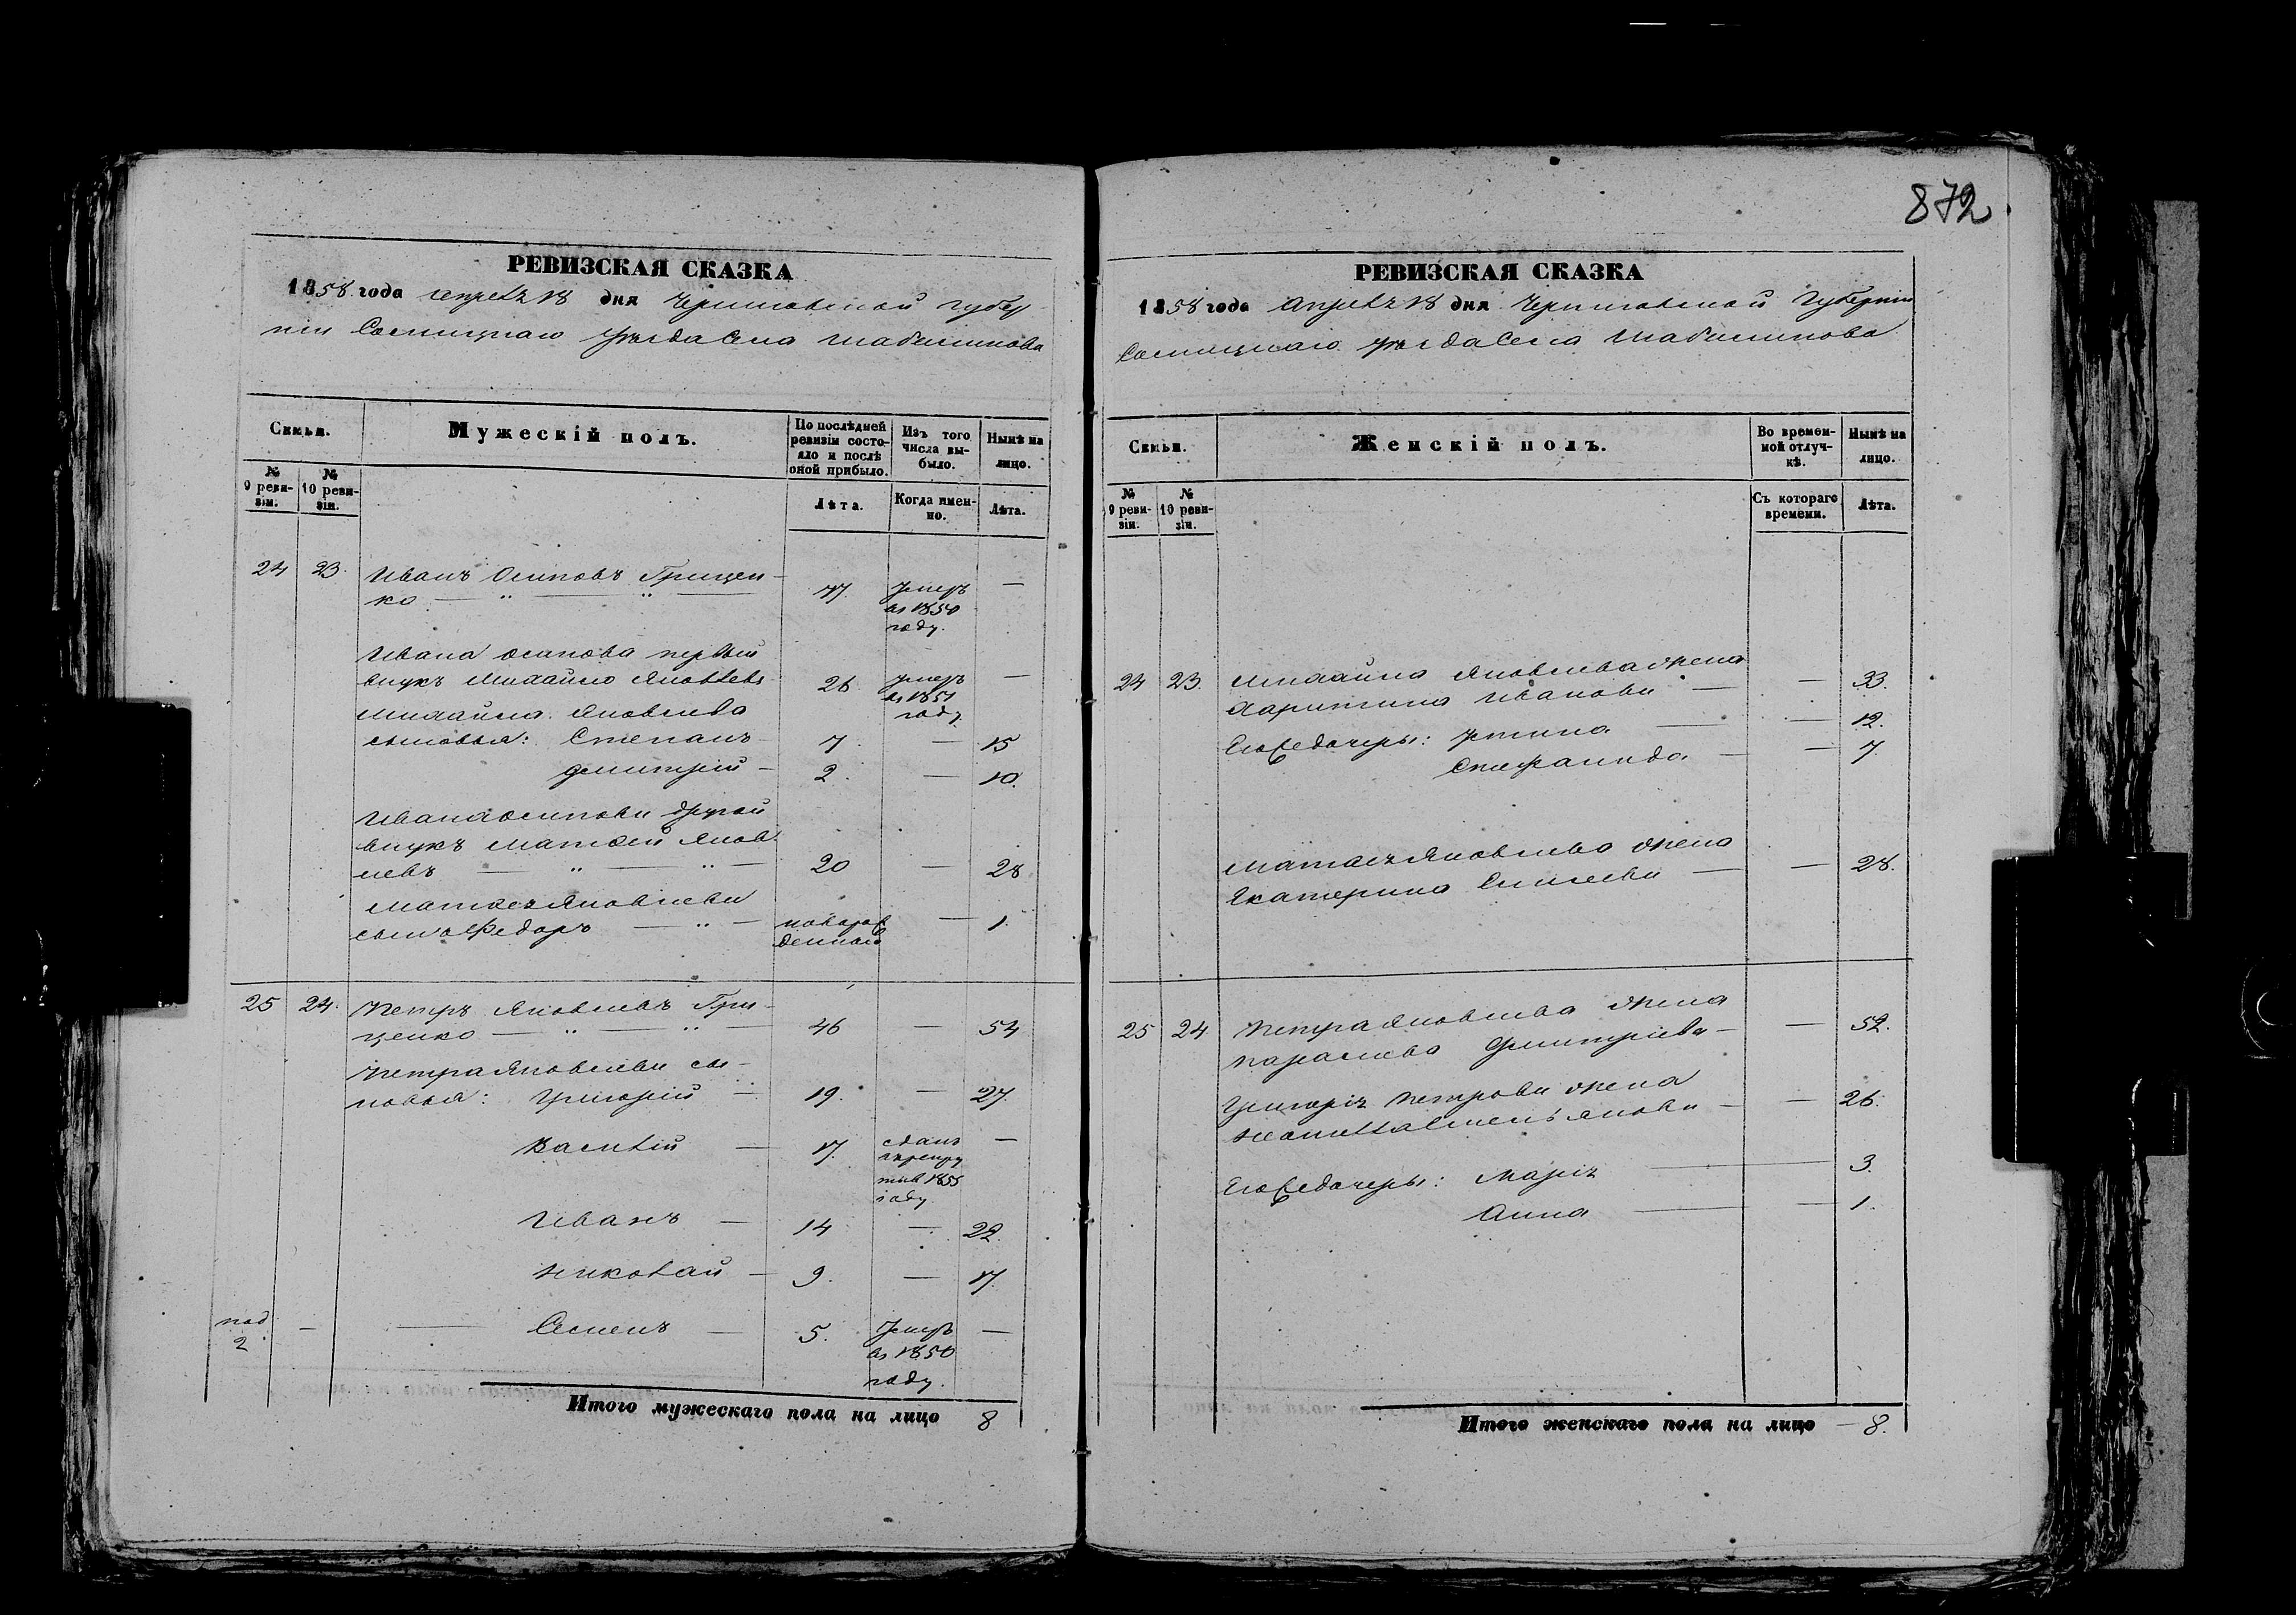 872.
РЕВИЗСКАЯ СКАЗКА
1858 года апреля 18 дня Черниговской губер
нии Сосницкаго уѣзда села Шабалинова
Семьи.
Мужескій полъ.
По послѣдней ревизіи состояло и послѣ оной прибыло.
Изъ того числа выбыло.
Нынѣ на лицо.
№ 9 ревизіи.
№ 10 ревизіи.
Лѣта.
Когда именно.
Лѣта.
24 23. Иванъ Осиповъ Грицен-
ко — " — " — 77. умеръ —
въ 1850
году.
Ивана Осипова первый
внукъ Михайло Яковлевъ 26 умеръ —
въ 1851
году
Михайла Яковлева
сыновья: Степанъ 7. — 15
Дмитрій — 2. — 10.
Ивана Осипова другой
внукъ Матвей Яков-
левъ — " — " — 20 — 28
Матвея Яковлева
сынъ Федоръ — " — новорож — 1.
денный
25 24. Петръ Яковлевъ Гри-
ценко — " — " — 46 — 54
Петра Яковлева сы-
новья: Григорій — 19. — 27.
Василій — 17. сданъ —
в рекру
ты в 1855
году
Иванъ — 14 — 22.
Николай — 9. — 17.
под
2 — — Семенъ — 5. умеръ —
въ 1850
году.
Итого мужескаго пола на лицо 8
РЕВИЗСКАЯ СКАЗКА
1858 года апреля 18 дня Черниговской Губерніи
Сосницкаго уѣзда села Шабалинова
Семьи.
Женскій полъ.
Во временной отлучкѣ.
Нынѣ на лицо.
№ 9 ревизіи.
№ 10 ревизіи.
Съ котораго времени.
Лѣта.
24 23. Михайла Яковлева жена
Харитина Иванова — — 33.
Его же дочери: Устина — — 12.
Степанида — — 7.
Матвея Яковлева жена
Екатерина — — 28.
25 24. Петра Яковлева жена
Параскева Дмитріева — — 52.
Григорія Петрова жена
— — 26.
Его же дочери: Марія — 3.
Анна — — 1.
Итого женскаго пола на лицо — 8.